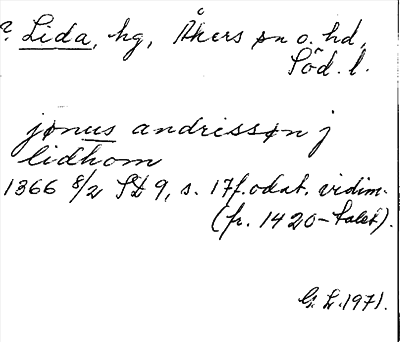 ? Lida, hg, Åkers sn o. hd,
Söd. l.
jønus andrissøn j
lidhom
1366 8/2 SD 9, s. 17 f. odat. vidim.
(fr. 1420-talet).
G. L. 1971.